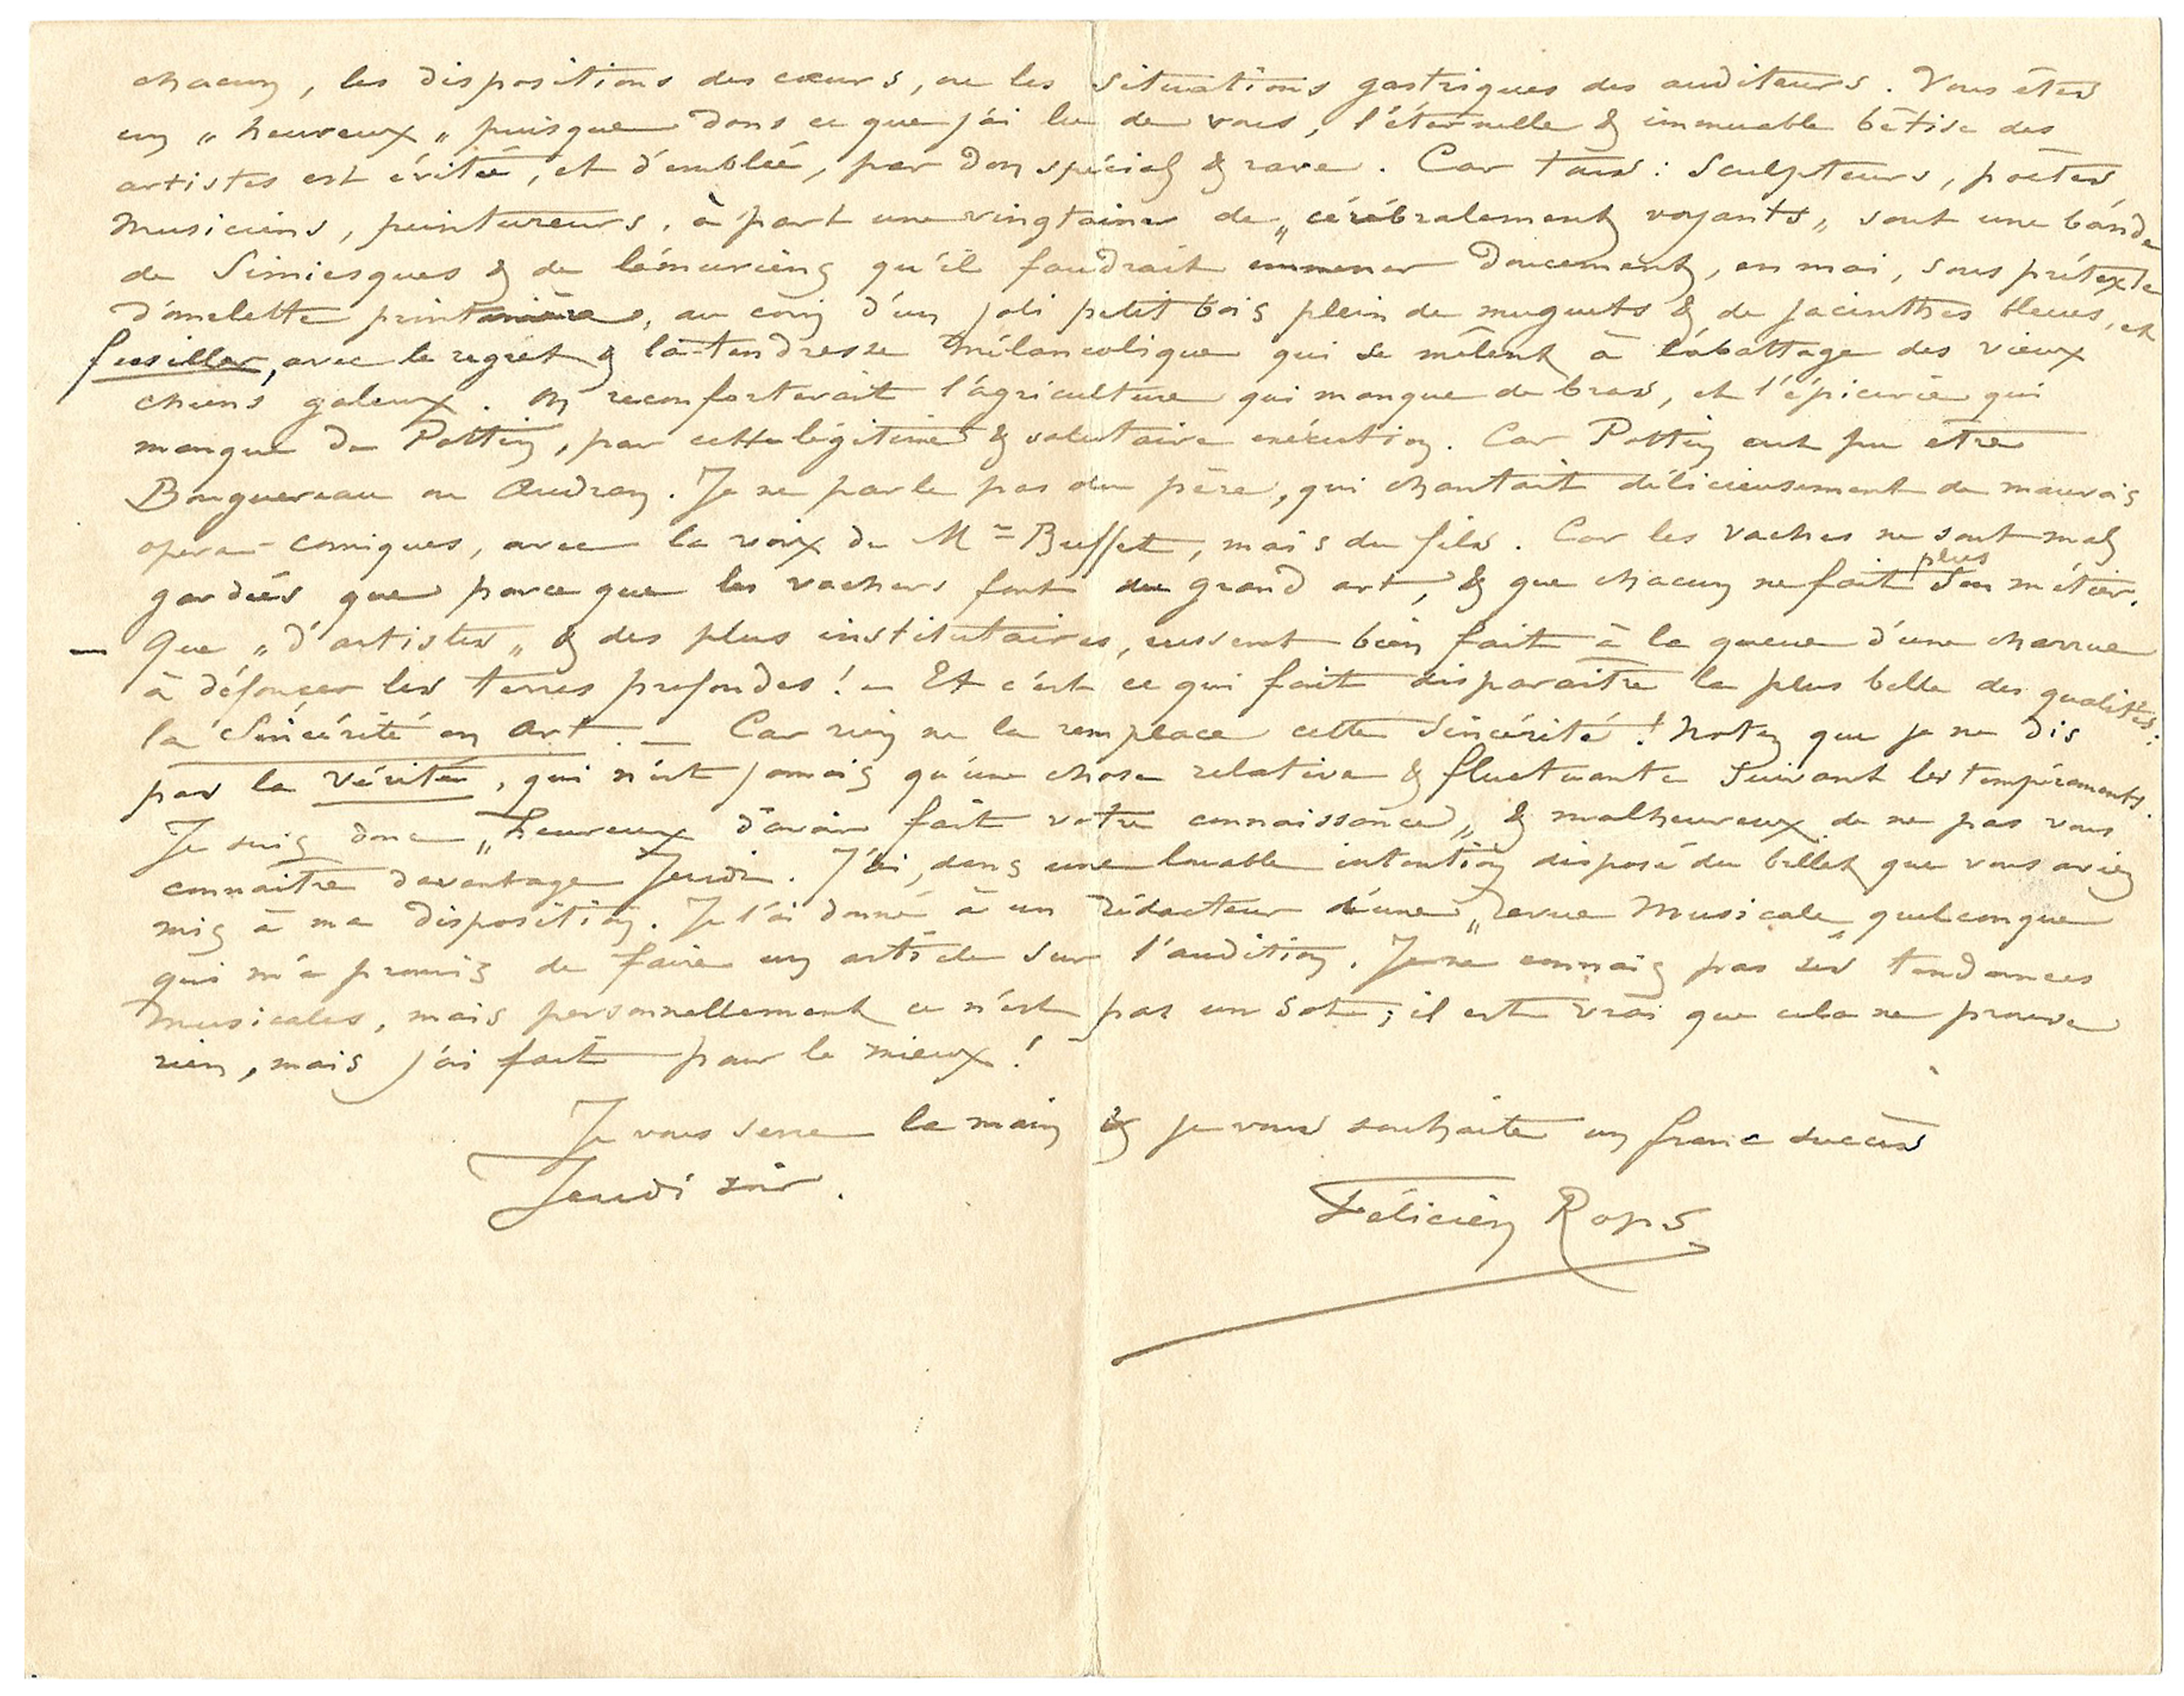 chacun, les dispositions des cœurs, ou les situations gastriques des auditeurs. Vous êtes
un „ heureux „ puisque dans ce que j'ai lu de vous, l'éternelle & immuable bêtise des
artistes est évitée, et d'emblée, par don spécial & rare. Car tous : sculpteurs, poètes
musiciens, peintureurs, à part une vingtaine de „ cérébralement voyants „ sont une bande
de Simiesques & de lémuriens qu'il faudrait emmener doucement, en mai, sous prétexte
d'omelette printanière, au coin d'un joli petit bois plein de muguets & de jacinthes bleues, et
fusiller, avec le regret & la tendresse mélancolique qui se mêlent à l'abattage des vieux
chiens galeux. On reconforterait l'agriculture qui manque de bras, et l'épicerie qui
manque de Pottin, par cette légitime & salutaire exécution. Car Pottin eut pu être
Bouguereau ou Audran. Je ne parle pas du père, qui chantait délicieusement de mauvais
opera-comiques, avec la voix de Mme Buffet, mais du fils. Car les vaches ne sont mal
gardées que parce que les vachers font du grand art, & que chacun ne fait plus son métier.
— Que „ d'artistes „ & des plus institutaires, eussent bien fait à la queue d'une charrue
à défoncer les terres profondes ! — Et c'est ce qui fait disparaître la plus belle des qualités :
la Sincérité en Art. — Car rien ne la remplace cette Sincérité ! Notez que je ne dis
pas la Vérité, qui n'est jamais qu'une chose relative & fluctuante suivant les tempéraments.
Je suis donc „ heureux d'avoir fait votre connaissance „ & malheureux de ne pas vous
connaître davantage Jeudi. J'ai, dans une louable intention disposé du billet que vous aviez
mis à ma disposition. Je l'ai donné à un rédacteur d'une „ revue Musicale „ quelconque
qui m'a promis de faire un article sur l'audition. Je ne connais pas ses tendances
musicales, mais personnellement ce n'est pas un sot ; il est vrai que cela ne prouve
rien, mais j'ai fait pour le mieux !
Je vous serre la main & je vous souhaite un franc succès
Jeudi soir.
Félicien Rops